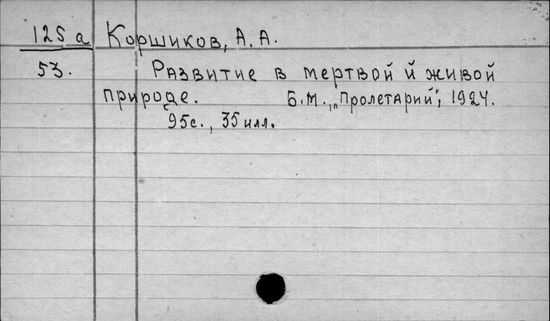 125 а Коршиков, А. А.
53. Развитие в мертвой й живой
природе. Б.М., „Пролетарий", 1924.
95с., 35 илл.